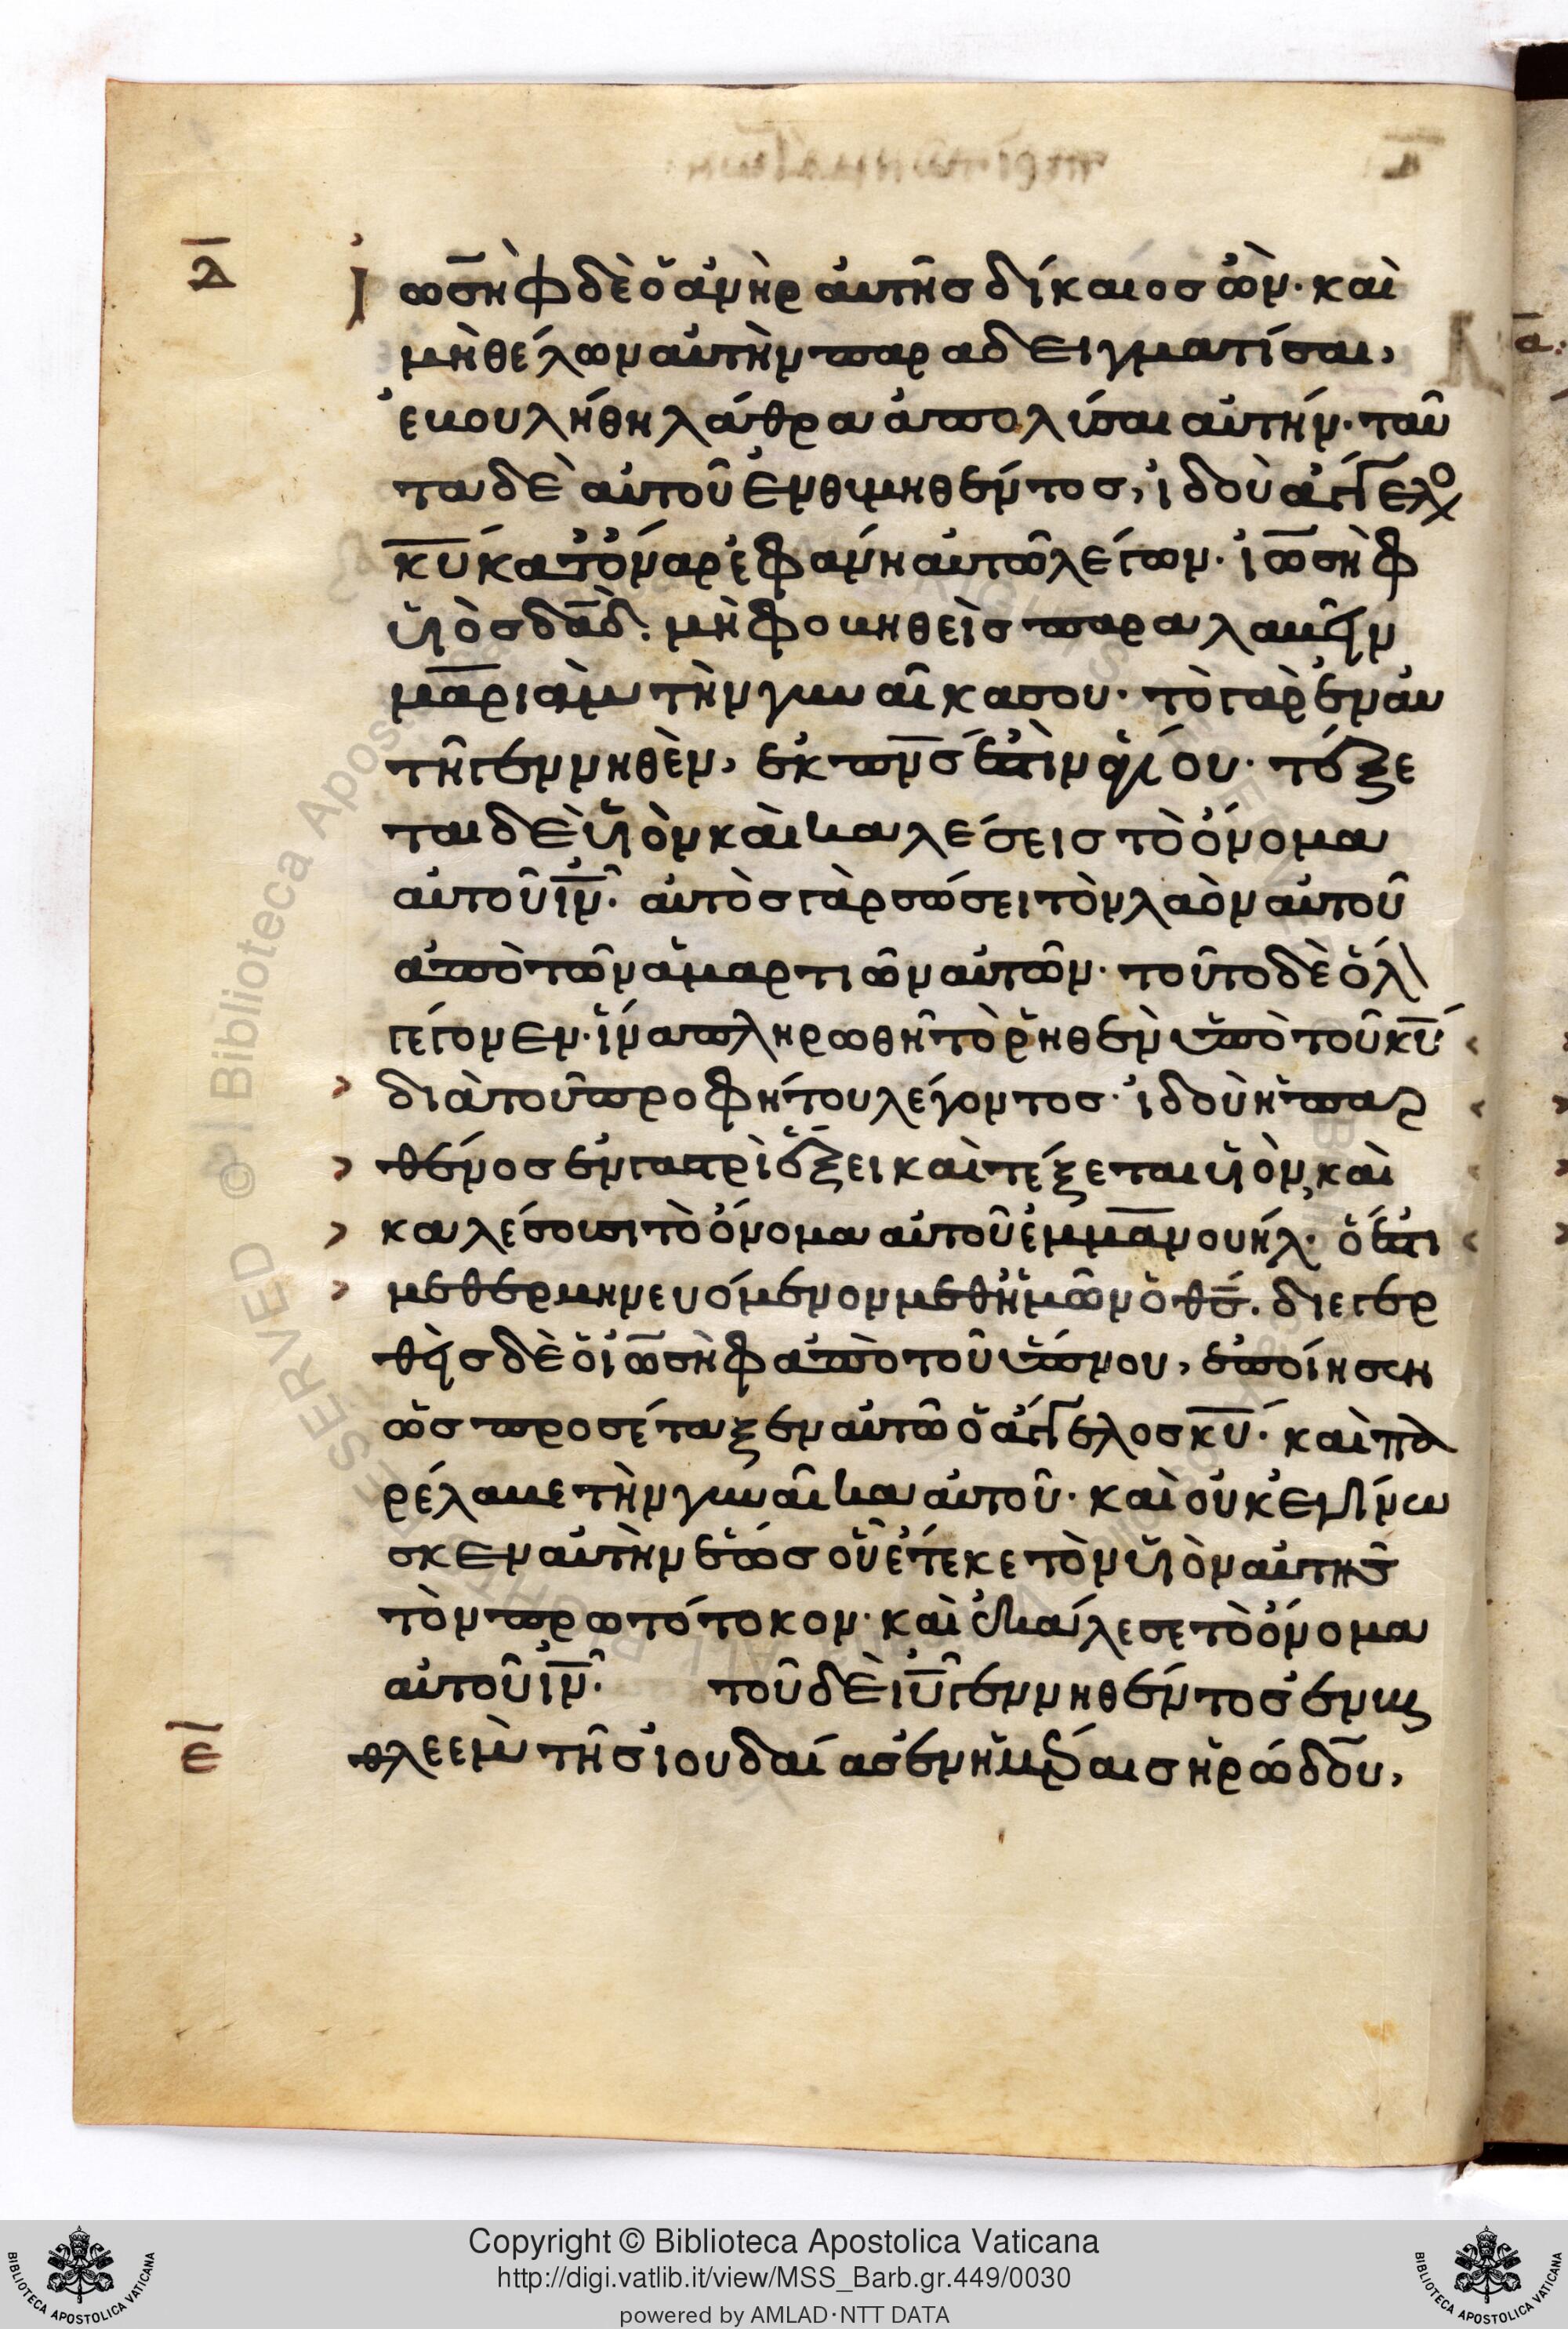 δ̅
Ἰωσὴφ δὲ ὁ ἀνὴρ αὐτῆς δίκαιος ὢν· καὶ
μὴ θέλων αὐτὴν παραδειγματίσαι,
ἐβουλήθη λάθρα ἀπολῦσαι αὐτήν· ταῦ
τα δὲ αὐτοῦ ἐνθυμηθέντος, ἰδοὺ ἄγγελο
κ̅υ̅ κατ' ὄναρ ἐφάνη αὐτῶ λέγων· ἰωσὴφ
υἱὸς δα̅δ̅. μὴ φοβηθεὶς παραλαβεῖν
μαριὰμ τὴν γυναῖκα σου· τὸ γὰρ ἐν αὐ
τῆ γεννηθὲν, ἐκ π̅ν̅σ̅ ἐστὶν ἁγίου· τέξε
ται δὲ υἱὸν καὶ καλέσεις τὸ ὄνομα
αὐτοῦ ι̅ν̅· αὐτὸς γὰρ σώσει τὸν λαὸν αὐτοῦ
ἀπὸ τῶν ἁμαρτιῶν αὐτῶν· τοῦτο δὲ ὅλ
γέγονεν· ἵνα πληρωθῆ τὸ ῥηθὲν ὑπὸ τοῦ κ̅υ̅
διὰ τοῦ προφήτου λέγοντος· ἰδοὺ ἡ παρ
θένος ἐν γαστρὶ ἕξει καὶ τέξεται υἱὸν, καὶ
καλέσουσι τὸ ὄνομα αὐτοῦ ἐμμανουήλ· ὅ ἐστι
μεθερμηνευόμενον μεθ' ἡμῶν ὁ θ̅ς̅. διεγερ
θεὶς δὲ ὁ ἰωσὴφ ἀπὸ τοῦ ὕπνου, ἐποίησεν
ὡς προσέταξεν αὐτῶ ὁ ἄγγελος κ̅υ̅· καὶ πα
ρέλαβε τὴν γυναῖκα αὐτοῦ· καὶ οὐκ ἐγίνω
σκεν αὐτὴν ἕως οὗ ἔτεκε τὸν υἱὸν αὐτῆς
τὸν πρωτότοκον· καὶ ἐκάλεσε τὸ ὄνομα
αὐτοῦ ι̅ν̅· τοῦ δὲ ι̅υ̅ γεννηθέντος ἐν βη
ε̅
θλεὲμ τῆς ἰουδαίας ἐν ἡμέραις ἡρώδου,
Copyright © Biblioteca Apostolica Vaticana
http://digi.vatlib.it/view/MSS_Barb.gr.449/0030
powered by AMLAD·NTT DATA
BIBLIOTECA APOSTOLICA VATICANA
BIBLIOTECA APOSTOLICA VATICANA